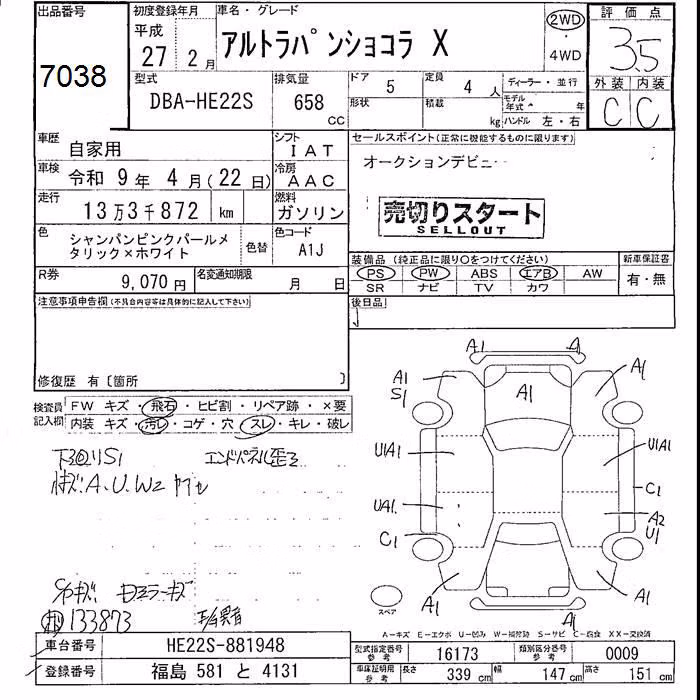 出品番号
7038
初度登録年月
平成
27 2月
車名・グレード
アルトラパンショコラ X
2WD
・
4WD
評価点
3.5
外装 内装
C C
型式
DBA-HE22S
排気量
658
CC
ドア 5
定員 4 人
形状
積載 kg
ディーラー・並行
モデル年式 年
ハンドル 左・右
車歴 自家用
シフト IAT
車検 令和 9年 4月(22日)
冷房 AAC
走行 13万3千872 km
燃料 ガソリン
色 シャンパンピンクパールメタリック×ホワイト
色替
色コード A1J
R券 9,070円
名変通知期限 月 日
セールスポイント(正常に機能するものに限ります)
オークションデビュー
売切りスタート
SELLOUT
装備品(純正品に限り○をつけてください)
PS PW ABS エアB AW
SR ナビ TV カワ
新車保証書
有・無
後日品
注意事項申告欄(不具合内容等は具体的に記入して下さい)
修復歴 有〔箇所 〕
検査員記入欄
FW キズ・飛石・ヒビ割・リペア跡・×要
内装 キズ・汚レ・コゲ・穴・スレ・キレ・破レ
下回りS1 エンドパネル歪ミ
キズ・A、U、W2
ミラーキズ
133873
A1 A1
A1
S1
A1
A1
U1A1
U1A1
C1
UA1
A2
U1
C1
A1
A1
A1
スペア
A-キズ E-エクボ U-凹み W-補修跡 S-サビ C-腐食 XX-交換済
車台番号 HE22S-881948
登録番号 福島 581 と 4131
型式指定番号 参考 16173
類別区分番号 参考 0009
車庫証明用 参考 長さ 339 cm 幅 147 cm 高さ 151 cm